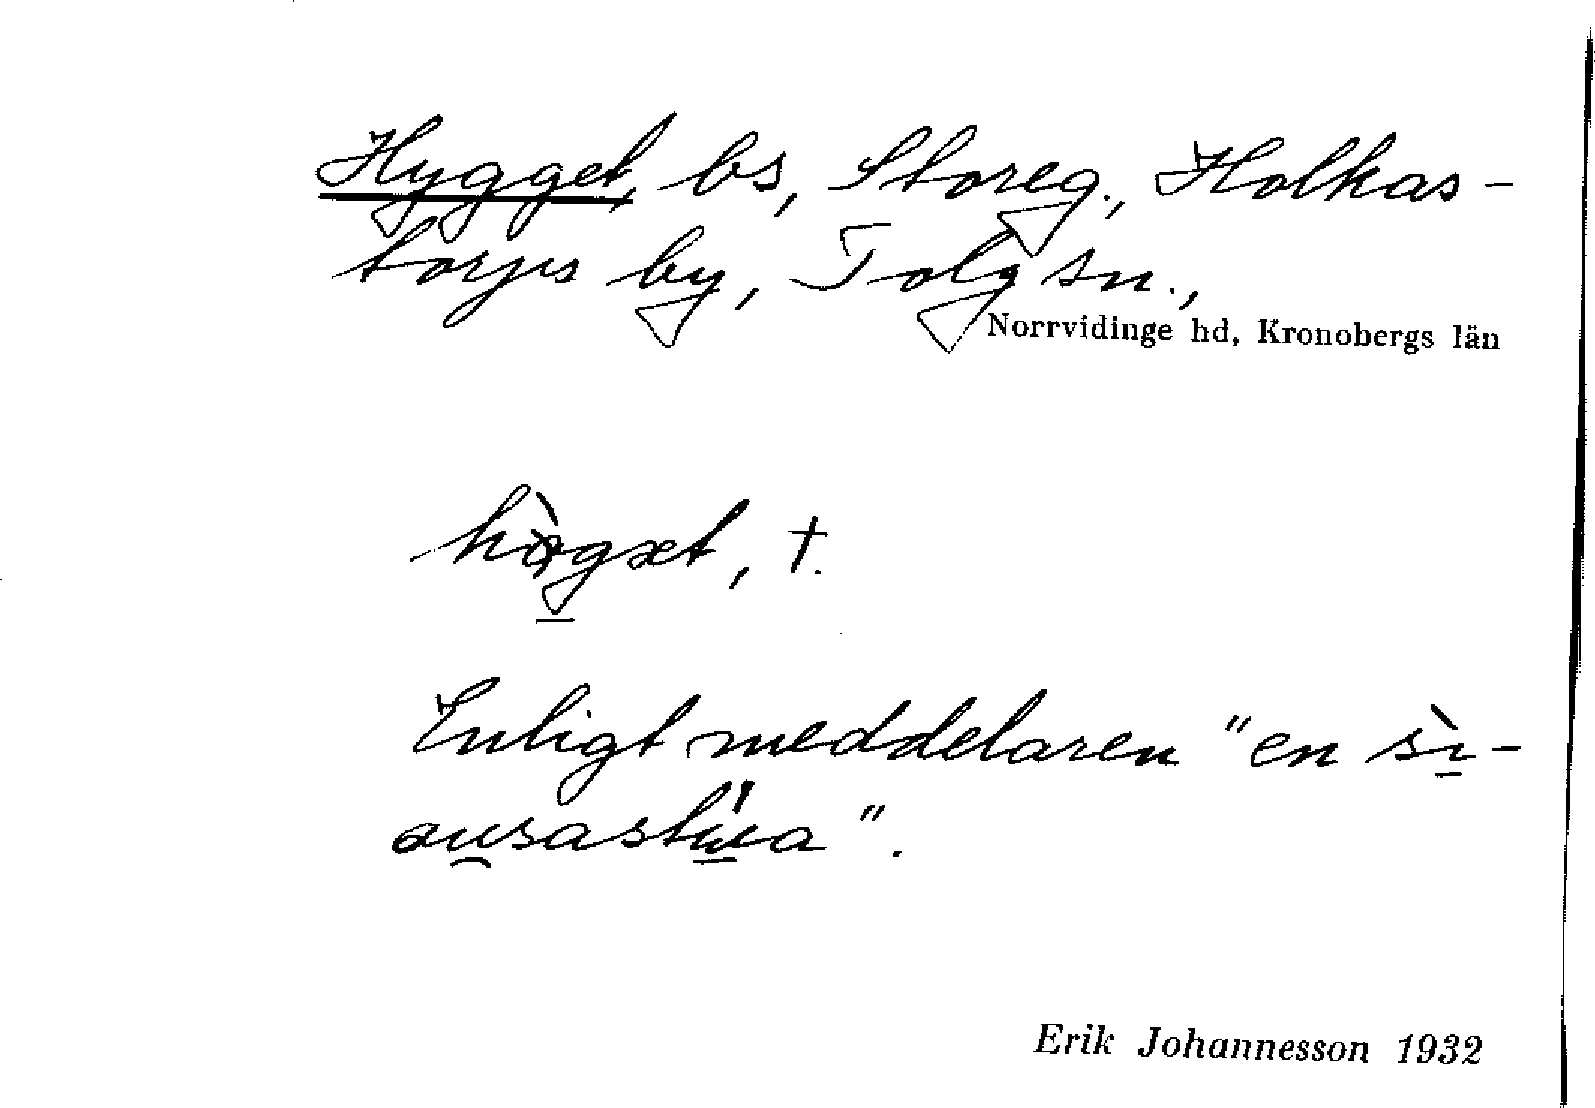 Hygget, bs, Storeg., Holkas-
torps by, Tolg sn.,
Norrvidinge hd, Kronobergs län
hø̀gæt, †.
Enligt meddelaren "en sı̀-
ausastu̇a".
Erik Johannesson 1932